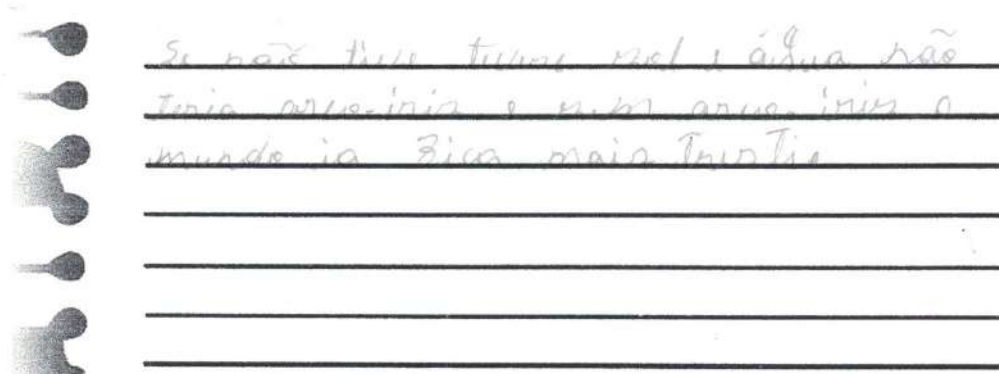 Se não tive tivene sol e água não
teria arco-iris e sem arco-iris o
mundo ia fica mais tristie